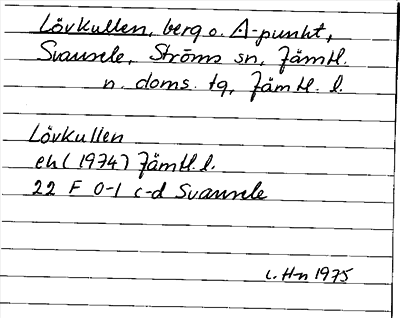 Lövkullen, berg o. Δ-punkt,
Svansele, Ströms sn, Jämtl.
n. doms. tg, Jämtl. l.
Lövkullen
ek (1974) Jämtl. l.
22 F 0-1 c-d Svansele
C. H-n 1975